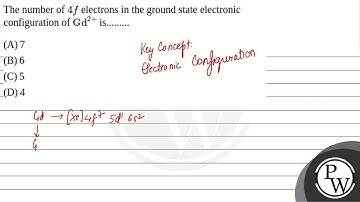 The number of 4f electrons in the ground state electronic
configuration of Gd²⁺ is.........
(A) 7
(B) 6
(C) 5
(D) 4
Key Concept:
Electronic Configuration
Gd → [Xe] 4f⁷ 5d¹ 6s²
↓
G
PW